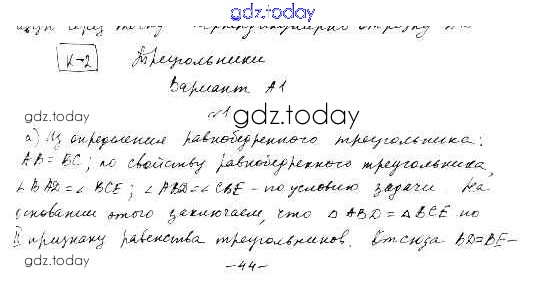 gdz.today
через точку перпендикулярно отрезку
К-2 Треугольники
Вариант А1
№1
gdz.today
а) Из определения равнобедренного треугольника:
gdz.today
AB = BC; по свойству равнобедренного треугольника,
∠BAD = ∠BCE; ∠ABD = ∠CBE - по условию задачи На
gdz.today
основании этого заключаем, что △ABD = △BCE по
II признаку равенства треугольников. Отсюда BD=BE-
gdz.today
-44-